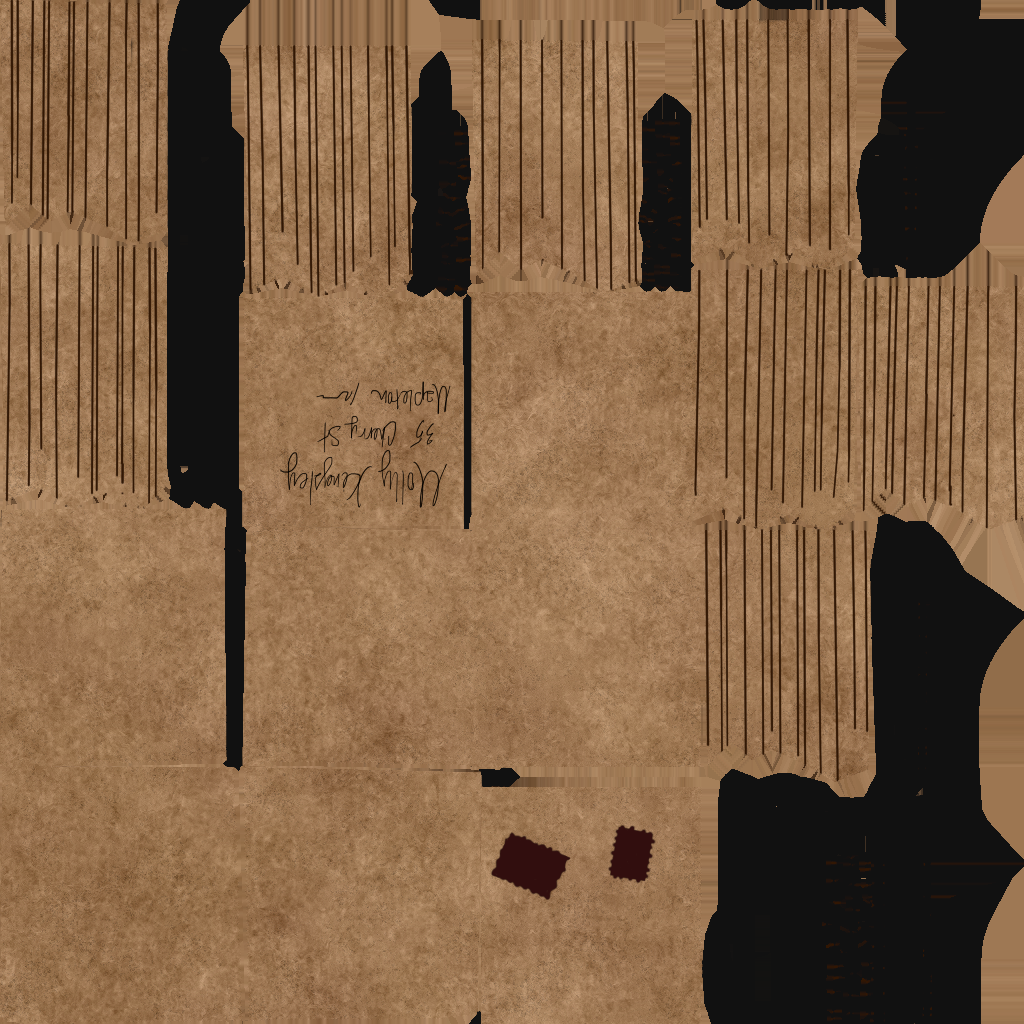 Molly Kengsley
35 Cherry St
Mapleton